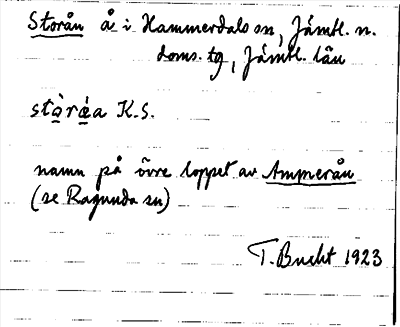 Storån å i Hammerdals sn, Jämtl. n.
doms. tg, Jämtl. län
stò̱rǽ̱a K.S.
namn på övre loppet av Ammerån
(se Ragunda sn)
T. Bucht 1923